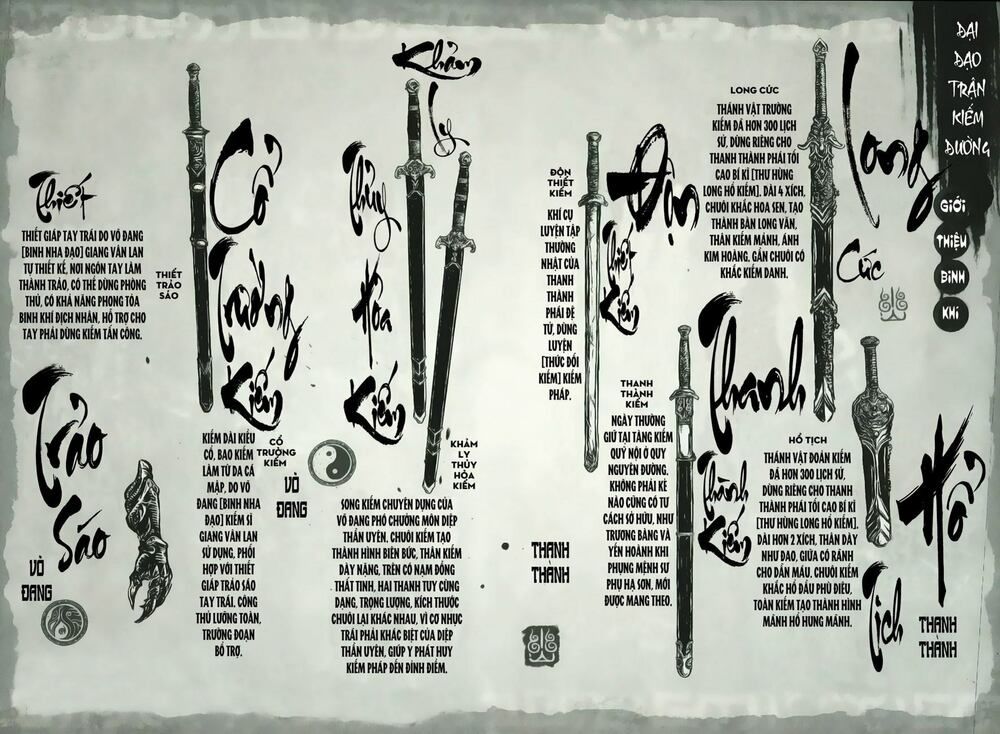 ĐẠI
ĐẠO
TRẬN
KIẾM
ĐƯỜNG
GIỚI
THIỆU
BINH
KHÍ
Long
Cức
LONG CỨC
THÁNH VẬT TRƯỜNG
KIẾM ĐÃ HƠN 300 LỊCH
SỬ, DÙNG RIÊNG CHO
THANH THÀNH PHÁI TỐI
CAO BÍ KÍ [THƯ HÙNG
LONG HỔ KIẾM]. DÀI 4 XÍCH,
CHUÔI KHẮC HOA SEN, TẠO
THÀNH BÀN LONG VÂN,
THÂN KIẾM MẢNH, ÁNH
KIM HOÀNG. GẦN CHUÔI CÓ
KHẮC KIẾM DANH.
Hổ
Tịch
HỔ TỊCH
THÁNH VẬT ĐOẢN KIẾM
ĐÃ HƠN 300 LỊCH SỬ,
DÙNG RIÊNG CHO THANH
THÀNH PHÁI TỐI CAO BÍ KÍ
[THƯ HÙNG LONG HỔ KIẾM].
DÀI HƠN 2 XÍCH, THÂN DÀY
NHƯ ĐAO, GIỮA CÓ RÃNH
CHO DẪN MÁU. CHUÔI KIẾM
KHẮC HỔ ĐẦU PHÙ ĐIÊU,
TOÀN KIẾM TẠO THÀNH HÌNH
MÃNH HỔ HUNG MÃNH.
THANH
THÀNH
Thanh
Thành
Kiếm
THANH
THÀNH
KIẾM
NGÀY THƯỜNG
GIỮ TẠI TÀNG KIẾM
QUỸ NỘI Ở QUY
NGUYÊN ĐƯỜNG.
KHÔNG PHẢI KẺ
NÀO CŨNG CÓ TƯ
CÁCH SỞ HỮU, NHƯ
TRƯƠNG BẰNG VÀ
YẾN HOÀNH KHI
PHỤNG MỆNH SƯ
PHỤ HẠ SƠN, MỚI
ĐƯỢC MANG THEO.
Độn
Thiết
Kiếm
ĐỘN
THIẾT
KIẾM
KHÍ CỤ
LUYỆN TẬP
THƯỜNG
NHẬT CỦA
THANH
THÀNH
PHÁI ĐỆ
TỬ, DÙNG
LUYỆN
[THỨC ĐỐI
KIẾM] KIẾM
PHÁP.
THANH
THÀNH
Khảm
Ly
Thủy
Hỏa
Kiếm
KHẢM
LY THỦY
HỎA
KIẾM
SONG KIẾM CHUYÊN DỤNG CỦA
VÕ ĐANG PHÓ CHƯỞNG MÔN DIỆP
THẦN UYÊN. CHUÔI KIẾM TẠO
THÀNH HÌNH BIÊN BỨC, THÂN KIẾM
DÀY NẶNG, TRÊN CÓ NẠM ĐỒNG
THẤT TINH, HAI THANH TUY CÙNG
DẠNG, TRỌNG LƯỢNG, KÍCH THƯỚC
CHUÔI LẠI KHÁC NHAU, VÌ CƠ NHỤC
TRÁI PHẢI KHÁC BIỆT CỦA DIỆP
THẦN UYÊN, GIÚP Y PHÁT HUY
KIẾM PHÁP ĐẾN ĐỈNH ĐIỂM.
Cổ
Trường
Kiếm
CỔ
TRƯỜNG
KIẾM
KIẾM DÀI KIỂU
CỔ, BAO KIẾM
LÀM TỪ DA CÁ
MẬP, DO VÕ
ĐANG [BINH NHA
ĐẠO] KIẾM SĨ
GIANG VÂN LAN
SỬ DỤNG, PHỐI
HỢP VỚI THIẾT
GIÁP TRẢO SÁO
TAY TRÁI. CÔNG
THỦ LƯỠNG TOÀN,
TRƯỜNG ĐOẢN
BỔ TRỢ.
VÕ
ĐANG
Thiết
Trảo
Sáo
THIẾT
TRẢO
SÁO
THIẾT GIÁP TAY TRÁI DO VÕ ĐANG
[BINH NHA ĐẠO] GIANG VÂN LAN
TỰ THIẾT KẾ, NƠI NGÓN TAY LÀM
THÀNH TRẢO, CÓ THỂ DÙNG PHÒNG
THỦ, CÓ KHẢ NĂNG PHONG TỎA
BINH KHÍ ĐỊCH NHÂN, HỖ TRỢ CHO
TAY PHẢI DÙNG KIẾM TẤN CÔNG.
VÕ
ĐANG